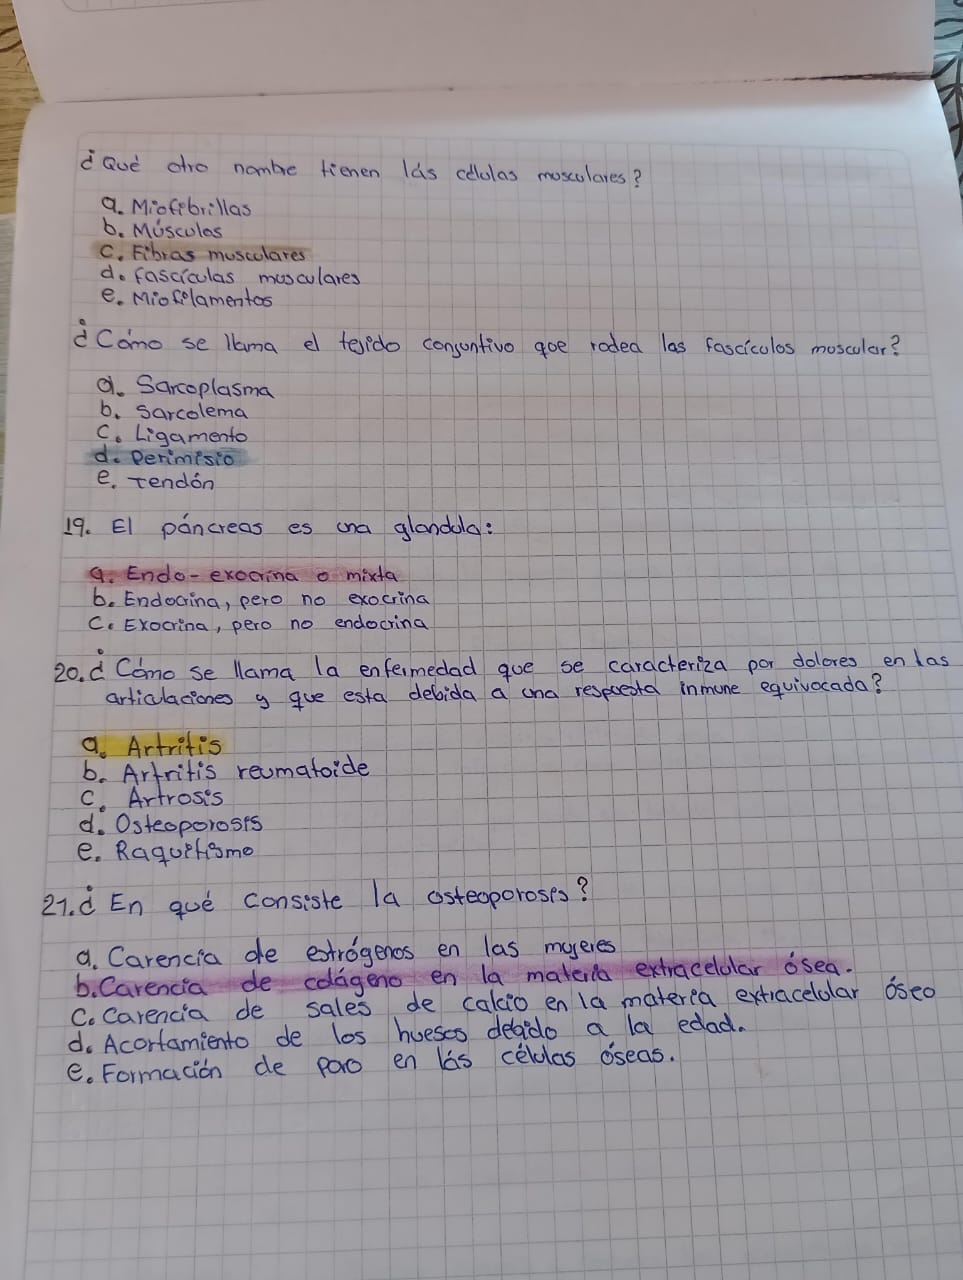 ¿Qué otro nombe tienen lás células musculares?
a. Miofibrillas
b. Músculos
c. Fibras musculares
d. fascículas musculares
e. Miofilamentos
¿Cómo se llama el tejido conjuntivo que rodea las fascículos muscular?
a. Sarcoplasma
b. Sarcolema
c. Ligamento
d. Perimisio
e. Tendón
19. El páncreas es una glandula:
a. Endo-exocrina o mixta
b. Endocrina, pero no exocrina
c. Exocrina, pero no endocrina
20. ¿Cómo se llama la enfermedad que se caracteriza por dolores en las
articulaciones y que esta debida a una respuesta inmune equivocada?
a. Artritis
b. Artritis reumatoide
c. Artrosis
d. Osteoporosis
e. Raquitismo
21. ¿En qué consiste la osteoporosis?
a. Carencia de estrógenos en las mujeres
b. Carencia de colágeno en la materia extracelular ósea.
c. Carencia de sales de calcio en la materia extracelular óseo
d. Acortamiento de los huesos debido a la edad.
e. Formación de paro en lás células óseas.